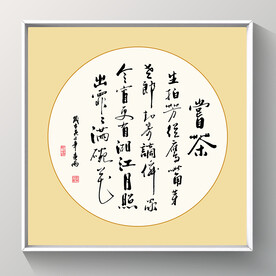 嘗茶
生拍芳丛鹰觜芽
老郎封寄謫僊家
今宵更有湘江月照
出霏〻滿碗花